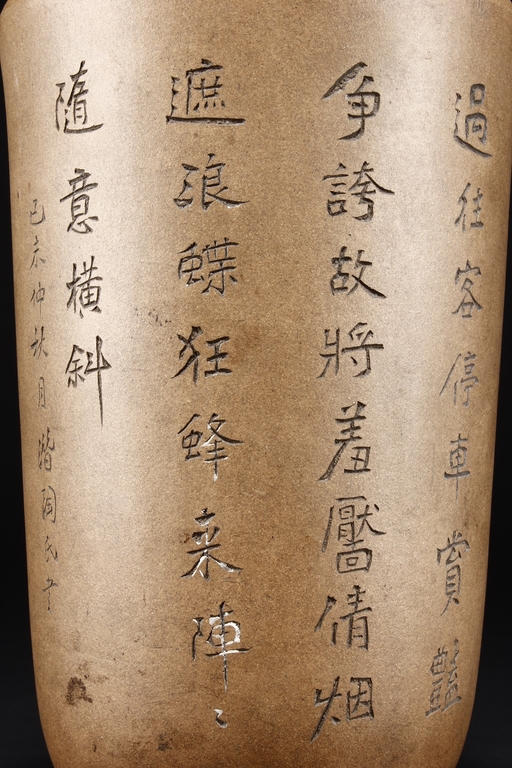 過往客停車賞豔
爭誇故將羞靨倩烟
遮浪蝶狂蜂來陣〻
隨意橫斜
己未仲秋月陶民